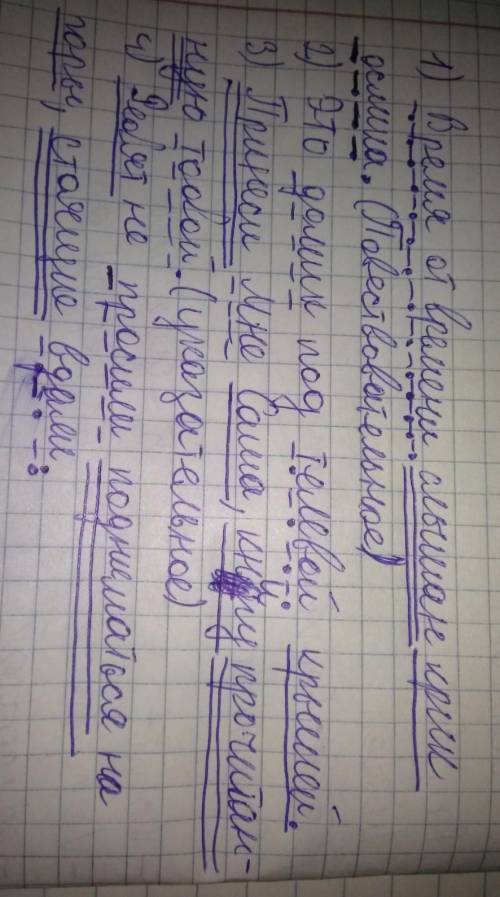 1) Время от времени слышан крик
ослика. (Повествовательное)
2) Это домик под телевой крышей.
3) Принеси мне Саша, книгу прочитан-
ную тобой. (указательное)
4) Ребят не просили подниматься на
горы, стоящие вдали